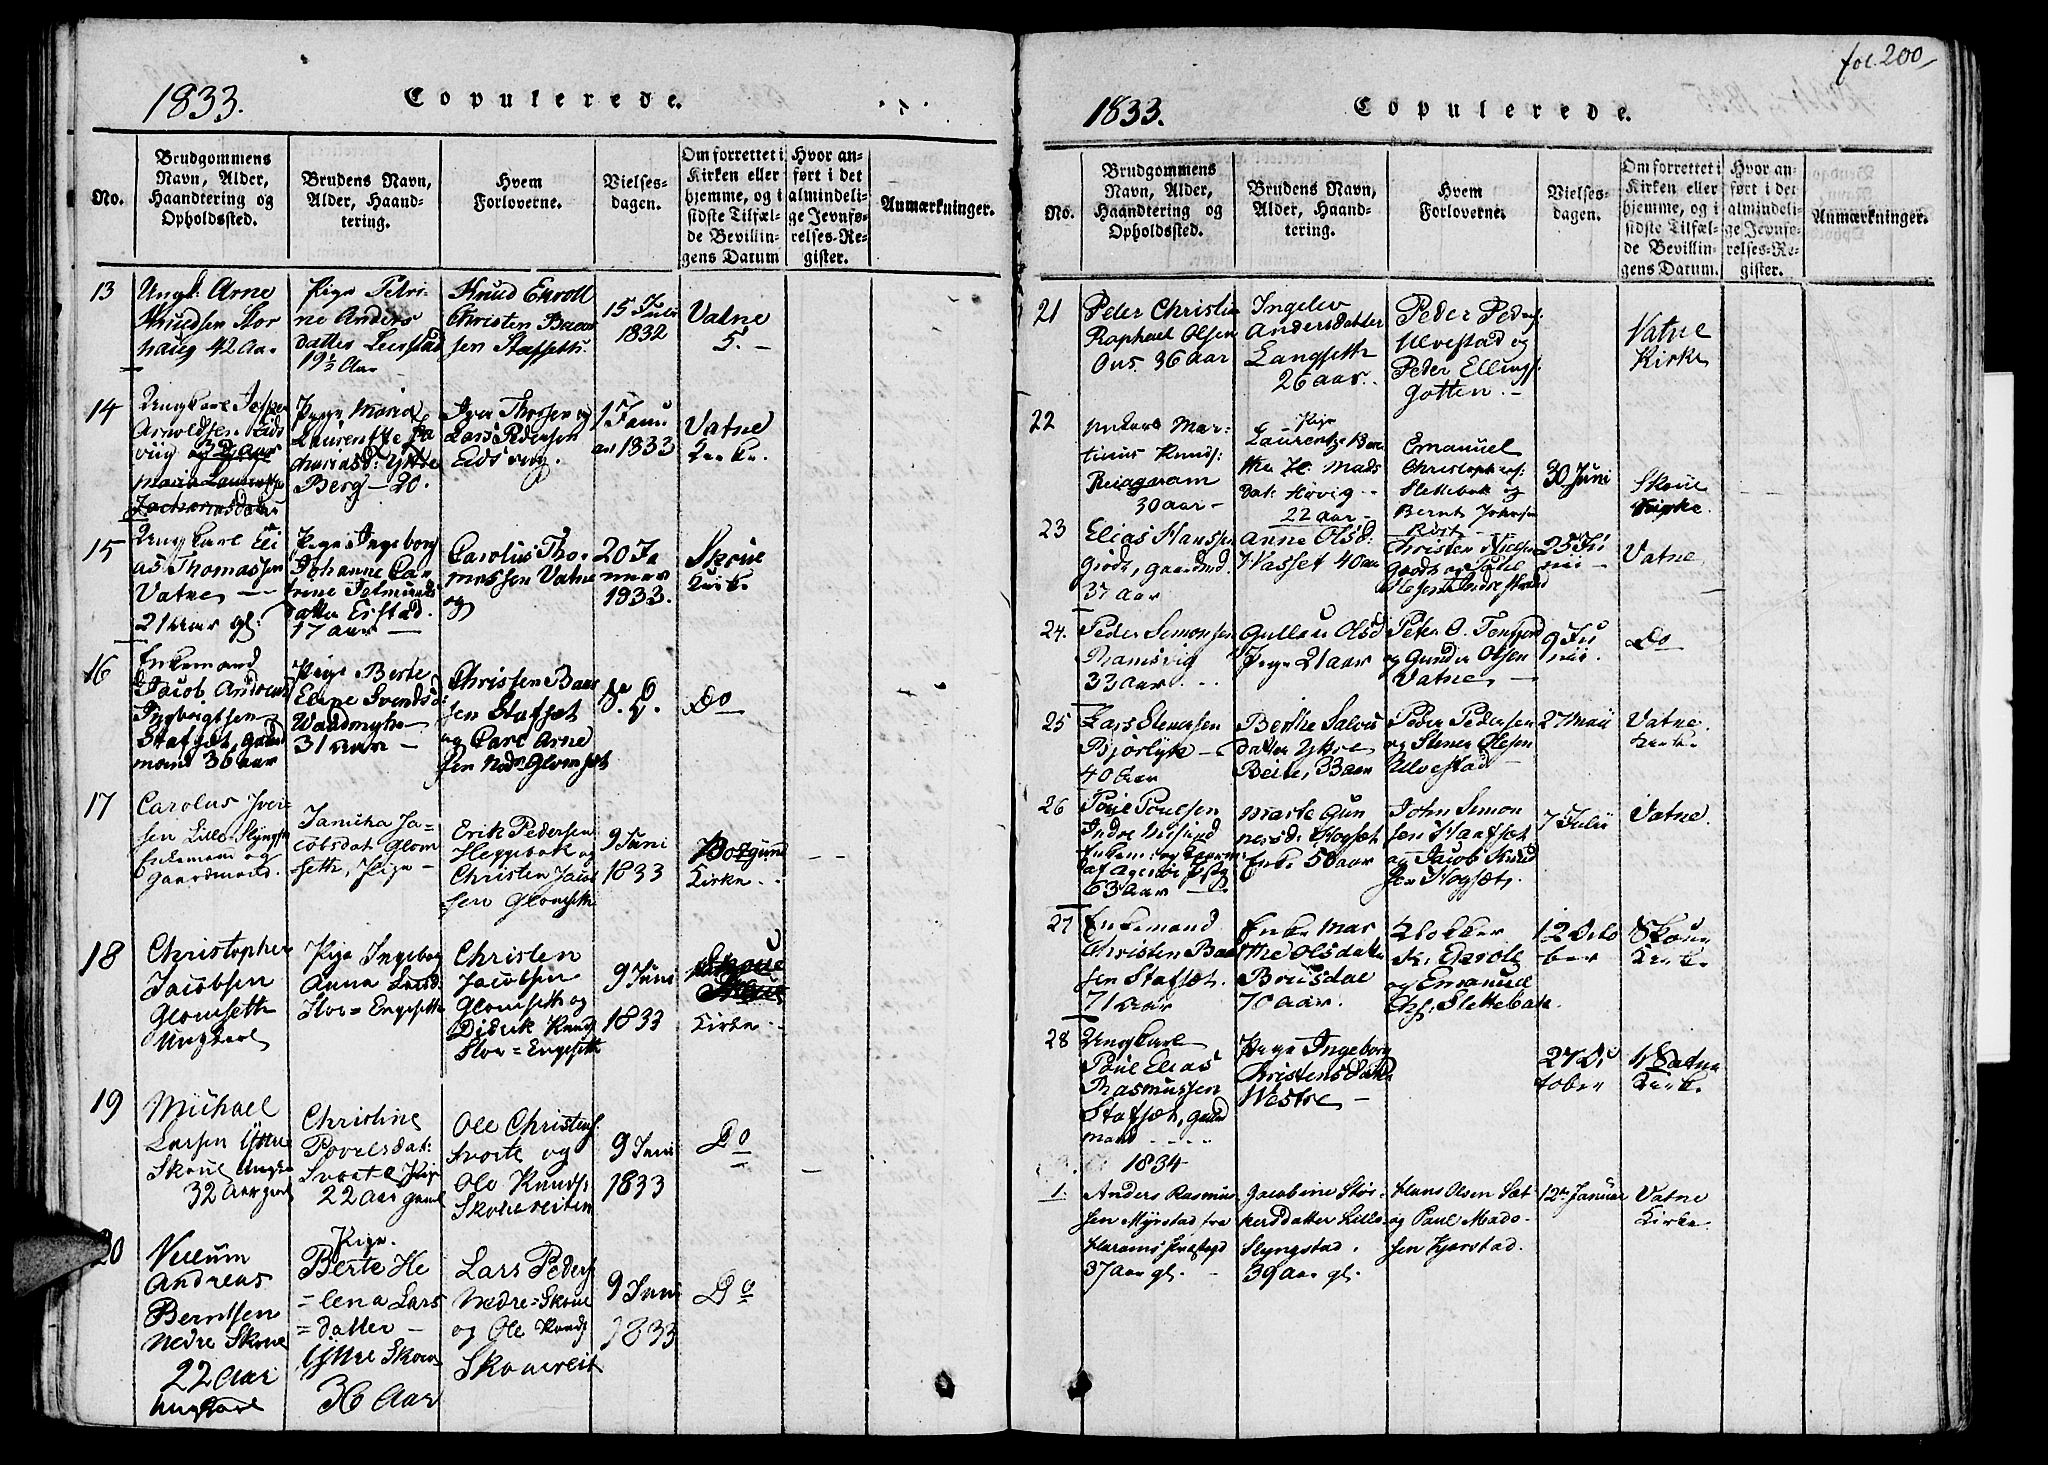 1833. Copulerede.
No.
Brudgommens
Navn, Alder,
Haandtering og
Opholdssted.
Brudens Navn,
Alder, Haand-
tering.
Hvem
Forloverne.
Vielses-
dagen.
Om forrettet i
Kirken eller
hjemme, og i
sidste Tilfæl-
de Bevillin-
gens Datum
Hvor an-
ført i det
almindeli-
ge Jevnfø-
relses-Re-
gister.
Anmærkninger.
13
Ungk: Arne
Knudsen Stor
haug 42 Aar
Pige Petri-
ne Anders
datter
19½ Aar
Knud
Christen Baar
sen Stafseth
15 Juli
1832
Vatne
14
Ungkarl Jesper
Arnoldsen Eids
viig 32 Aar
Maria Laurentze
Zachariasdatter
Pige Maria
Laurentze Za
chariasd: Yttre
Berg - 20.
Iver Thorsen og
Lars Pedersen
Eidsvig.
1 Janu
ar 1833
Vatne
Kirke.
15
Ungkarl Eli
as Thomassen
Vatne
21 Aar gl:
Pige Ingeborg
Johanne Ca
trine
datter Eistad.
17 aar
Carolus Tho-
massen Vatne
og
20 Ja
nuar
1833.
Skoue
Kirk.
16
Enkemand
Jacob Andreas
Stafset, gaard
mand 36 aar
Pige Berte
Eline Svendsd
Waadmyhr
31 aar
Christen Baar
sen Stafset
og Carl Arne
sen Nedr Glomset
Do
17
Carolus Iver-
sen Lille Slyngst
Enkemand og
gaardmand.
Janicka Ja=
cobsdat Glom
seth, Pige
Erik Pedersen
Heggebak og
Christen Jacob
sen Glomseth
9 Juni
1833
Borgund
Kirke.
18
Christopher
Jacobsen
Glomseth
Ungkarl
Pige Ingeborg
Anna Larsd.
Stor=Engeseth
Christen
Jacobsen
Glomseth og
Didrik Knuds
Stor=Engeseth
9 Juni
1833
Skoue
Kirke
19
Michael
Larsen Yttre
Skoue Ungk
32 Aar gml
Christine
Povelsdat:
Svorte Pige
22 Aar gaml
Ole Christens:
Svorte og
Ole Knuds:
Skouereiten
9 Juni
1833
Do
20
Vilum
Andreas
Berntsen
Nedre Skoue
22 Aar
Ungkarl
Pige.
Berte He
=lena Lars
=datter
Yttre Skoue
36 Aar
Lars Peders
Nedre=Skoue
og Ole Knuds
Skouereit
9 Juni
1833
Do
fol. 200
1833. Copulerede.
No.
Brudgommens
Navn, Alder,
Haandtering og
Opholdssted.
Brudens Navn,
Alder, Haand-
tering.
Hvem
Forloverne.
Vielses-
dagen.
Om forrettet i
Kirken eller
hjemme, og i
sidste Tilfæl-
de Bevillin-
gens Datum.
Hvor an-
ført i det
almindeli-
ge Jevnfø-
relses-Re-
gister.
Anmærkninger.
21
Peter Christia
Raphael Olsen
Ons. 36 aar
Ingelev
Andersdatter
Langseth
26 aar.
Peder Peders
Ulvestad og
Peder Ellings:
Gotten.
Vatne
Kirke
22
Mar-
tinus Knuds:
30 aar
Pige
Laurentze Bere
the H: Mads
dat: Høvig
22 aar
Emanuel
Christophers:
Slettebak og
Bernt Johnsen
30 Juni
Skoue
Kirke.
23
Elias Hanssen
Giødt, gaardmd.
37 aar
Anne Olsd:
Hasset 40 aar
Christen Nielsen
Giødt og
25 Ju
nii
Vatne
24.
Peder Simonsen
Ramsvig
33 aar.
Gullau Olsd
Pige 21 aar
Peter O. Tenfjord
og Gunder Olsen
Vatne
9 Ju
nii.
Do
25
Lars Stenersen
Bjørlyk
40 aar
Berthe
datter Yttre
Beite, 33 aar
Peder Pedersen
og Stener Olesen
Ulvestad
27 Maii
Vatne
Kirke.
26
Poul Poulsen
Indre
63 aar
Marte Gun
nersd: Hogset
Enke 50 aar
John Simon
sen
og Jacob Knud
sen Hogset.
7 Julii
Vatne.
27
Enkemand
Christen Baar
sen Stafset.
71 aar
Enke Mar
the Olsdatter
Bruusdal
70 aar.
Klokker
K. Enrole
og Emanuel
Chf. Slettebak
12 Octo
ber
Skoue
Kirke
28
Ungkarl
Poul Elias
Rasmussen
Stafset, gaard
mand
Pige Ingeborg
Christensdatter
Westre
27 Oc
tober
Vatne
Kirke.
1834
1.
Anders Rasmus
sen Myrstad fra
Harams Præstegd
37 Aar gl.
Jacobine Stør-
kersdatter Lille
Slyngstad.
39 Aar gl.
Hans Olsen Sæt
og Paul Mads-
sen Hjerstad.
12te Januar
Vatne
Kirke.